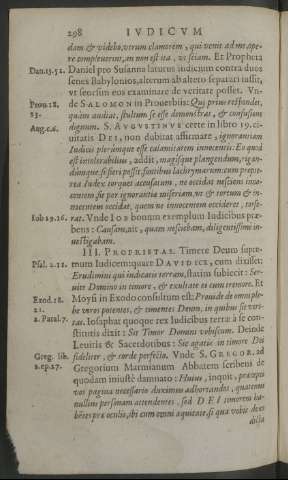 298 IVDICVM
dam & videbo, vtrum clamorem, qui venit ad me, ope-
re compleuerint, an non est ita, vt sciam. Et Propheta
Dan.13.52. Daniel pro Susanna laturus iudicium contra duos
senes Babylonios, alterum ab altero separari iussit,
vt seorsim eos examinare de veritate posset. Vn-
Prou.18. de SALOMON in Prouerbiis: Qui prius respondet,
13. quàm audiat, stultum se esse demonstrat, & confusione
dignum. S. AVGVSTINVS certe in libro 19. ci-
Aug.c.6. uitatis DEI, non dubitat affirmare, ignorantiam
Iudicis plerumque esse calamitatem innocentis. Et quod
est intolerabilius, addit, magisque plangendum, rigan-
dumque, si fieri posset, fontibus lachrymarum cum propte-
rea Iudex torqueat accusatum, ne occidat nesciens inno-
centem fit per ignorantiæ miseriam, vt & tortum & in-
nocentem occidat, quem ne innocentem occideret, torse-
Iob 29.16. rat. Vnde IOB bonum exemplum Iudicibus præ-
bens: Causam, ait, quam nesciebam, diligentissime in-
uestigabam.
III. PROPRIETAS. Timere Deum supre-
Psal. 2.11. mum Iudicem: quare DAVID REX, cum dixisset:
Erudimini qui iudicatis terram, statim subiecit: Ser-
uite Domino in timore, & exultate ei cum tremore. Et
Exod.18. Moysi in Exodo consultum est: Prouide de omni ple-
21. be viros potentes, & timentes Deum, in quibus sit veri-
2. Paral.7. tas. Iosaphat quoque rex Iudicibus terræ a se con-
stitutis dixit: Sit Timor Domini vobiscum. Deinde
Leuitis & Sacerdotibus: Sic agatis in timore Dei
Greg. lib. fideliter, & corde perfecto. Vnde S. GREGOR. ad
2.ep.27. Gregorium Marmianum Abbatem scribens de
quodam iniuste damnato: Huius, inquit, præcepti
vos pagina necessario duximus adhortandos, quatenus
nullius personam attendentes, sed DEI timorem ha-
bētes præ oculis, ibi cum omni æquitate, si qua vobis de eo
dicta